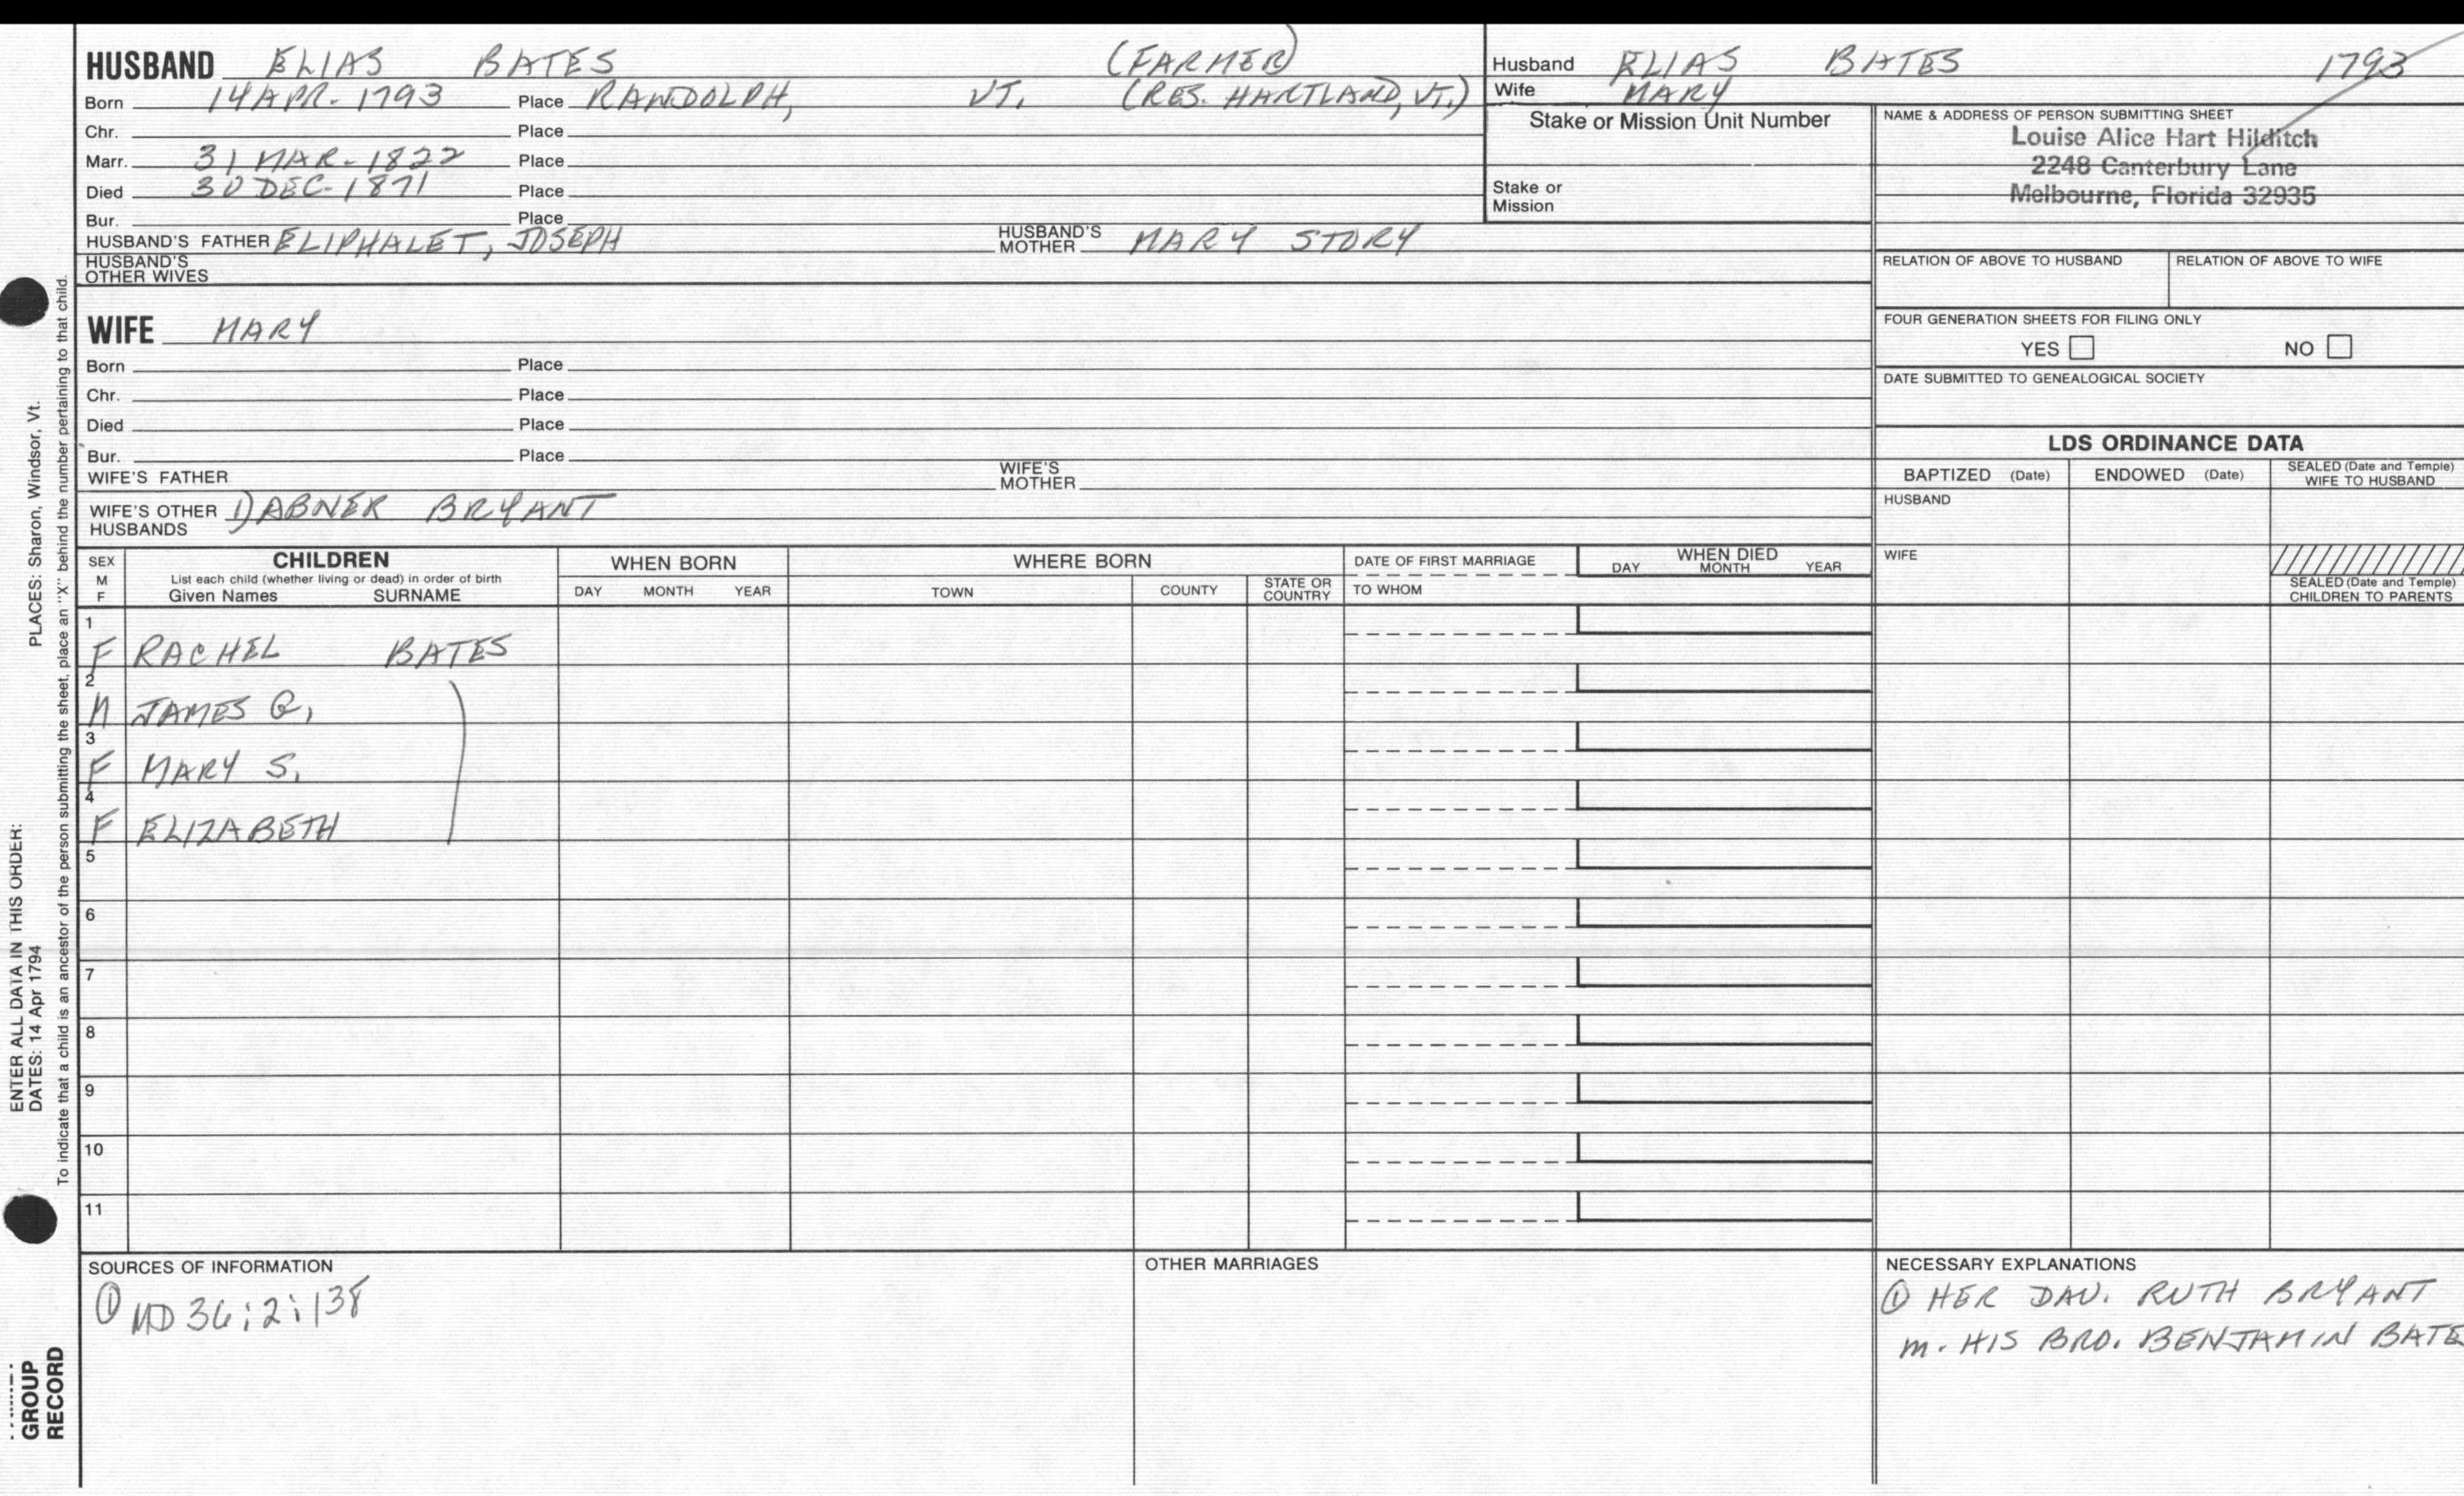 HUSBAND ELIAS BATES (FARMER)
Born 14 APR. 1793 Place RANDOLPH, VT. (RES. HARTLAND, VT.)
Chr. Place
Marr. 31 MAR. 1822 Place
Died 30 DEC. 1871 Place
Bur. Place
HUSBAND'S FATHER ELIPHALET, JOSEPH HUSBAND'S MOTHER MARY STORY
HUSBAND'S OTHER WIVES
Husband ELIAS BATES 1793
Wife MARY
Stake or Mission Unit Number
Stake or
Mission
NAME & ADDRESS OF PERSON SUBMITTING SHEET
Louise Alice Hart Hilditch
2248 Canterbury Lane
Melbourne, Florida 32935
RELATION OF ABOVE TO HUSBAND RELATION OF ABOVE TO WIFE
FOUR GENERATION SHEETS FOR FILING ONLY
YES NO
DATE SUBMITTED TO GENEALOGICAL SOCIETY
WIFE MARY
Born Place
Chr. Place
Died Place
Bur. Place
WIFE'S FATHER WIFE'S MOTHER
WIFE'S OTHER HUSBANDS 1) ABNER BRYANT
LDS ORDINANCE DATA
BAPTIZED (Date) ENDOWED (Date) SEALED (Date and Temple) WIFE TO HUSBAND
HUSBAND
WIFE
SEALED (Date and Temple)
CHILDREN TO PARENTS
SEX
M
F
CHILDREN
List each child (whether living or dead) in order of birth
Given Names SURNAME
WHEN BORN
DAY MONTH YEAR
WHERE BORN
TOWN COUNTY STATE OR COUNTRY
DATE OF FIRST MARRIAGE
TO WHOM
WHEN DIED
DAY MONTH YEAR
1
F RACHEL BATES
2
M JAMES Q.
3
F MARY S.
4
F ELIZABETH
5
6
7
8
9
10
11
SOURCES OF INFORMATION
① MD 36:2:138
OTHER MARRIAGES
NECESSARY EXPLANATIONS
① HER DAU. RUTH BRYANT
m. HIS BRO. BENJAMIN BATE
ENTER ALL DATA IN THIS ORDER:
DATES: 14 Apr 1794 PLACES: Sharon, Windsor, Vt.
To indicate that a child is an ancestor of the person submitting the sheet, place an "X" behind the number pertaining to that child.
GROUP
RECORD